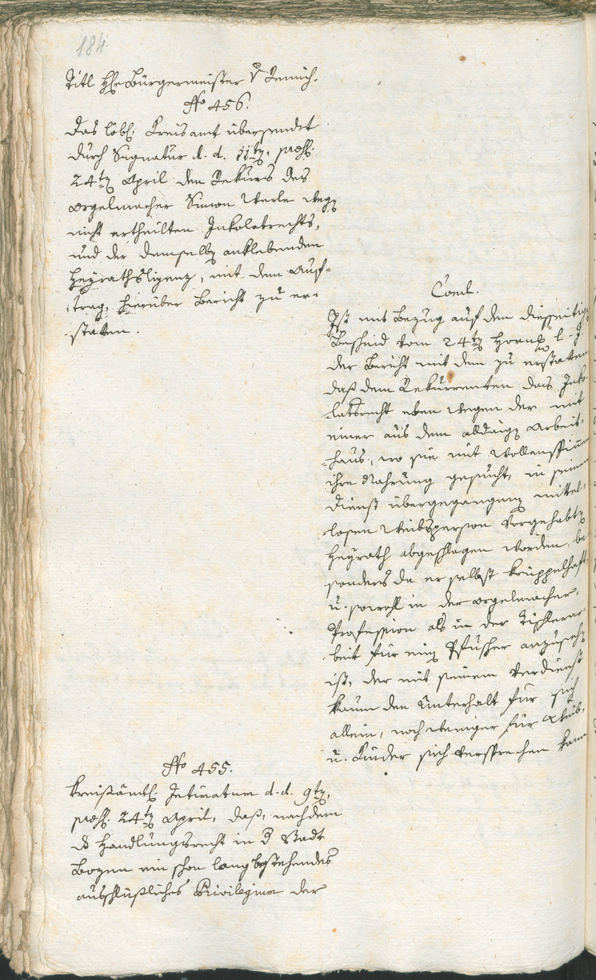 184.
Titl Hh: Bürgermeister v
No 456.
Das löbl. Kreisamt übersendet
durch Signatur d. d. 11ten, praes.
24ten April den Rekurs des
Orgelmacher Simon Werle wegen
nicht ertheilten Inkolatrechts,
und der demselben anklebenden
Heyrathslizenz, mit dem Auf-
trag, hierüber Bericht zu er-
statten.
Concl.
Ist mit Bezug auf den diesseitigen
Bescheid vom 24ten Hornung l. J
der Bericht mit dem zu erstatten
daß dem Rekurrenten das Inko
latsrecht eben wegen der mit
einer aus dem alldaigen Arbeit-
haus, wo sie mit Wollenspinnen
ihre Nahrung gesucht, in seinen
Dienst übergegangenen mittel-
losen Weibsperson vorgehabten
Heyrath abgeschlagen worden be
sonders da er selbst krüppelhaft
u. sowohl in der Orgelmacher-
Profession als in der Tischlerar
beit für einen Pfuscher anzusehen
ist, der mit seinem Verdienst
kaum den Unterhalt für sich
allein, noch weniger für Weib,
u. Kinder sich versprechen kann
No 455.
Kreisämtl. Intimatum d. d. 9ten,
praes. 24ten April, daß, nachdem
d Handlungsrecht in d Stadt
Bozen ein schon lang bestehendes
ausschlüßliches Privilegium der